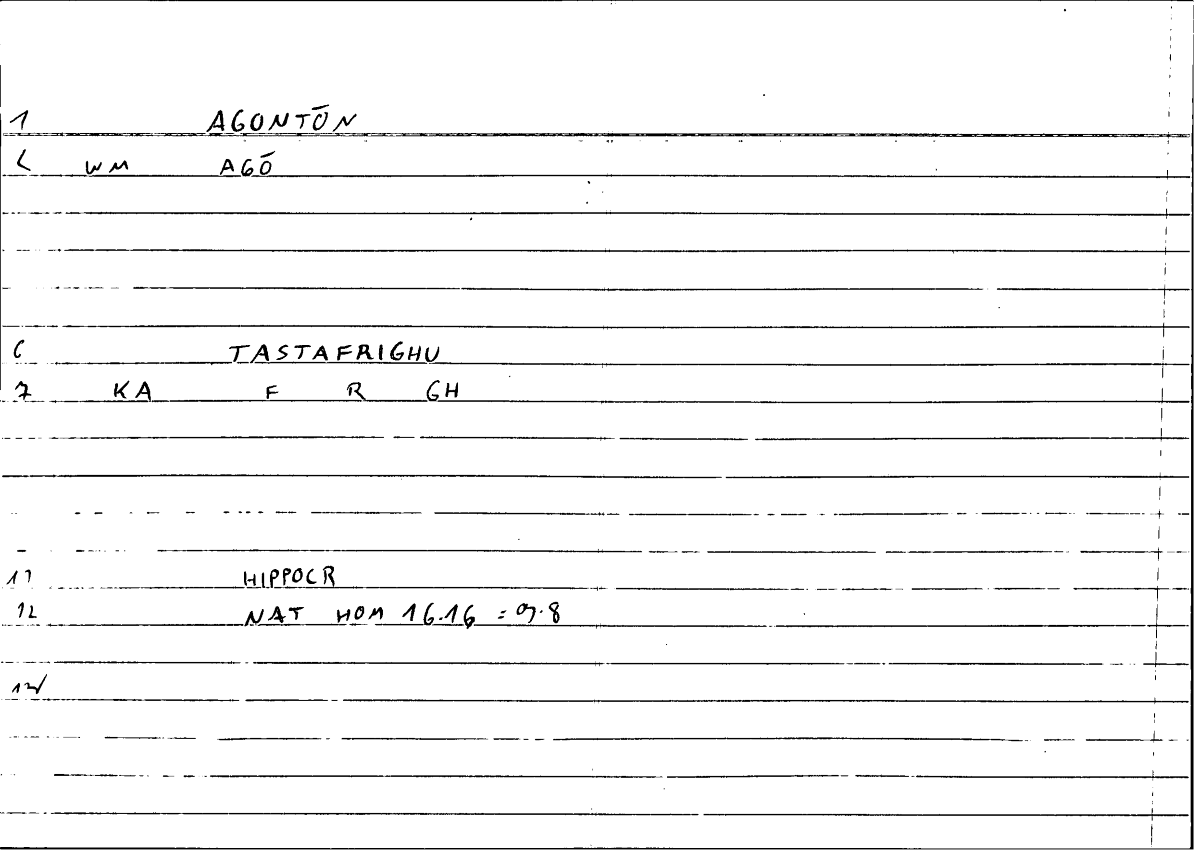 1 AGONTŌN
2 WM AGŌ
6 TASTAFRIGHU
7 KA F R GH
11 HIPPOCR
12 NAT HOM 16.16 =